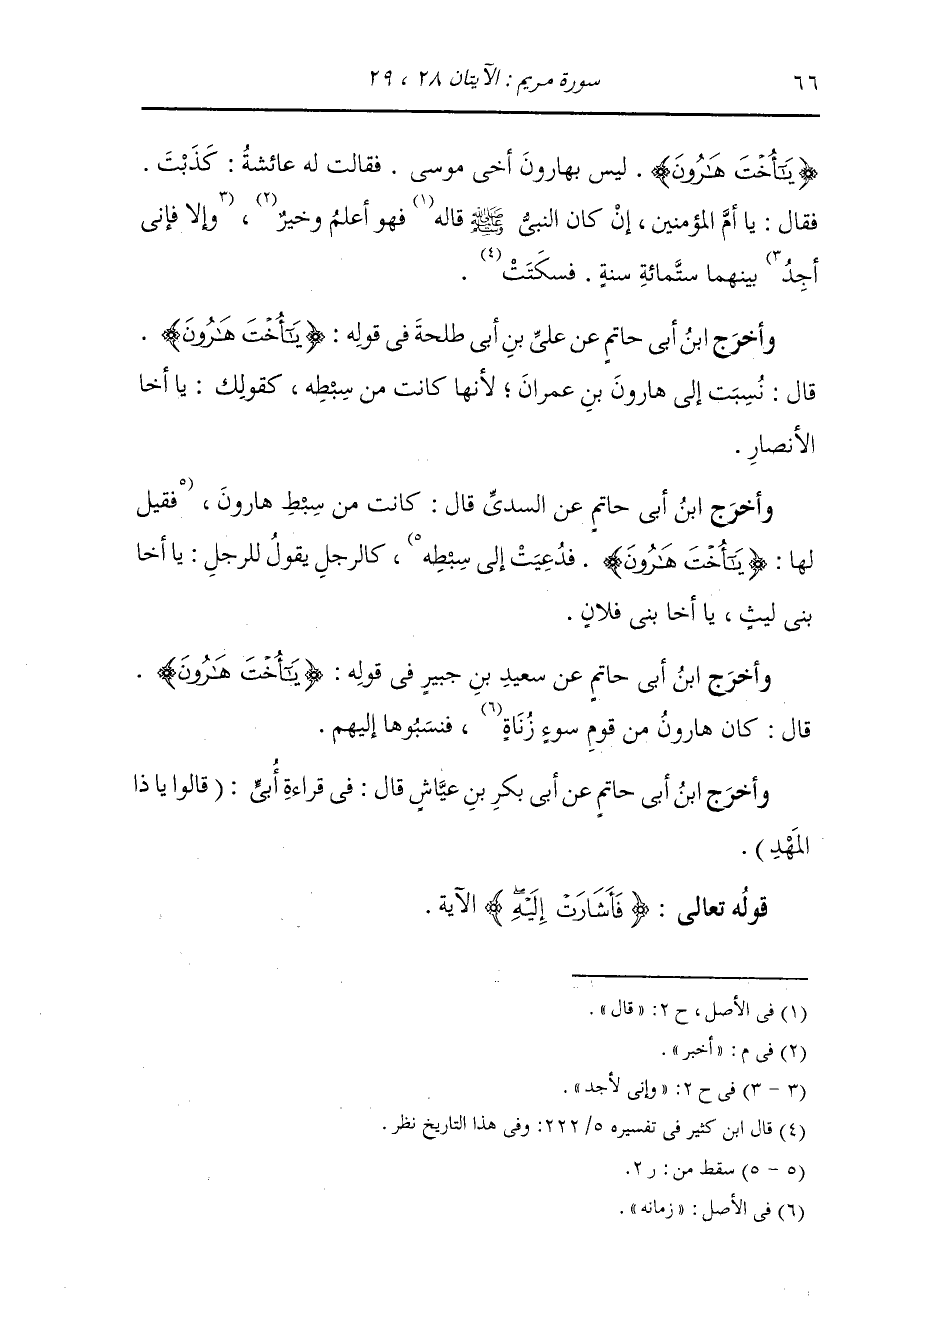 ٦٦ سورة مريم : الآيتان ٢٨ ، ٢٩
﴿يَٰٓأُخْتَ هَٰرُونَ﴾ . ليس بهارونَ أخى موسى . فقالت له عائشةُ : كَذَبْتَ .
فقال : يا أمَّ المؤمنين ، إنْ كان النبىُّ ﷺ قاله(١) فهو أعلمُ وخيرٌ(٢) ، (٣وإلا فإنى
أجِدُ٣) بينهما ستَّمائةِ سنةٍ . فسكَتَتْ(٤) .
وأخرَج ابنُ أبى حاتمٍ عن علىِّ بنِ أبى طلحةَ فى قولِه : ﴿يَٰٓأُخْتَ هَٰرُونَ﴾ .
قال : نُسِبَت إلى هارونَ بنِ عمرانَ ؛ لأنها كانت من سِبْطِه ، كقولِك : يا أخا
الأنصارِ .
وأخرَج ابنُ أبى حاتمٍ عن السدىِّ قال : كانت من سِبْطِ هارونَ ، (٥فقيل
لها : ﴿يَٰٓأُخْتَ هَٰرُونَ﴾ . فدُعِيَتْ إلى سِبْطِه٥) ، كالرجلِ يقولُ للرجلِ : يا أخا
بنى ليثٍ ، يا أخا بنى فلانٍ .
وأخرَج ابنُ أبى حاتمٍ عن سعيدِ بنِ جبيرٍ فى قولِه : ﴿يَٰٓأُخْتَ هَٰرُونَ﴾ .
قال : كان هارونُ من قومِ سوءٍ زُنَاةٍ(٦) ، فنسَبُوها إليهم .
وأخرَج ابنُ أبى حاتمٍ عن أبى بكرِ بنِ عيَّاشٍ قال : فى قراءةِ أُبىٍّ : ( قالوا يا ذا
المَهْدِ ) .
قولُه تعالى : ﴿ فَأَشَارَتْ إِلَيْهِۖ ﴾ الآية .
(١) فى الأصل ، ح ٢: «قال» .
(٢) فى م : «أخبر» .
(٣ - ٣) فى ح ٢: «وإنى لأجد» .
(٤) قال ابن كثير فى تفسيره ٥/ ٢٢٢: وفى هذا التاريخ نظر .
(٥ - ٥) سقط من : ر ٢.
(٦) فى الأصل : «زمانه» .